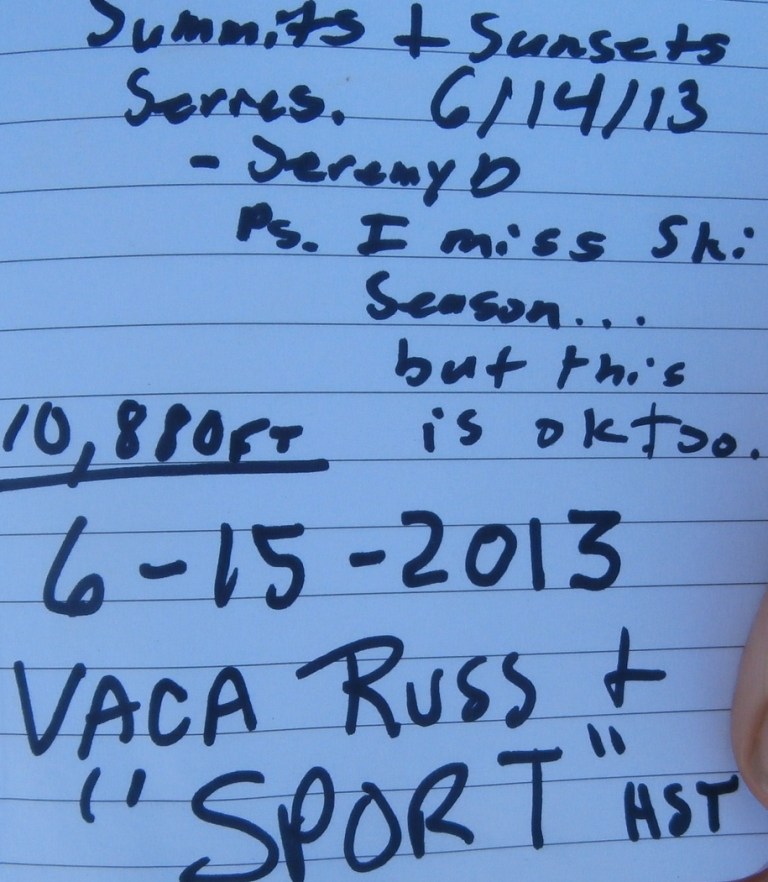 Summits + Sunsets
Series. 6/14/13
- Jeremy D
Ps. I miss Ski
Season...
but this
is ok too.
10,880FT
6-15-2013
VACA RUSS +
"SPORT" HST